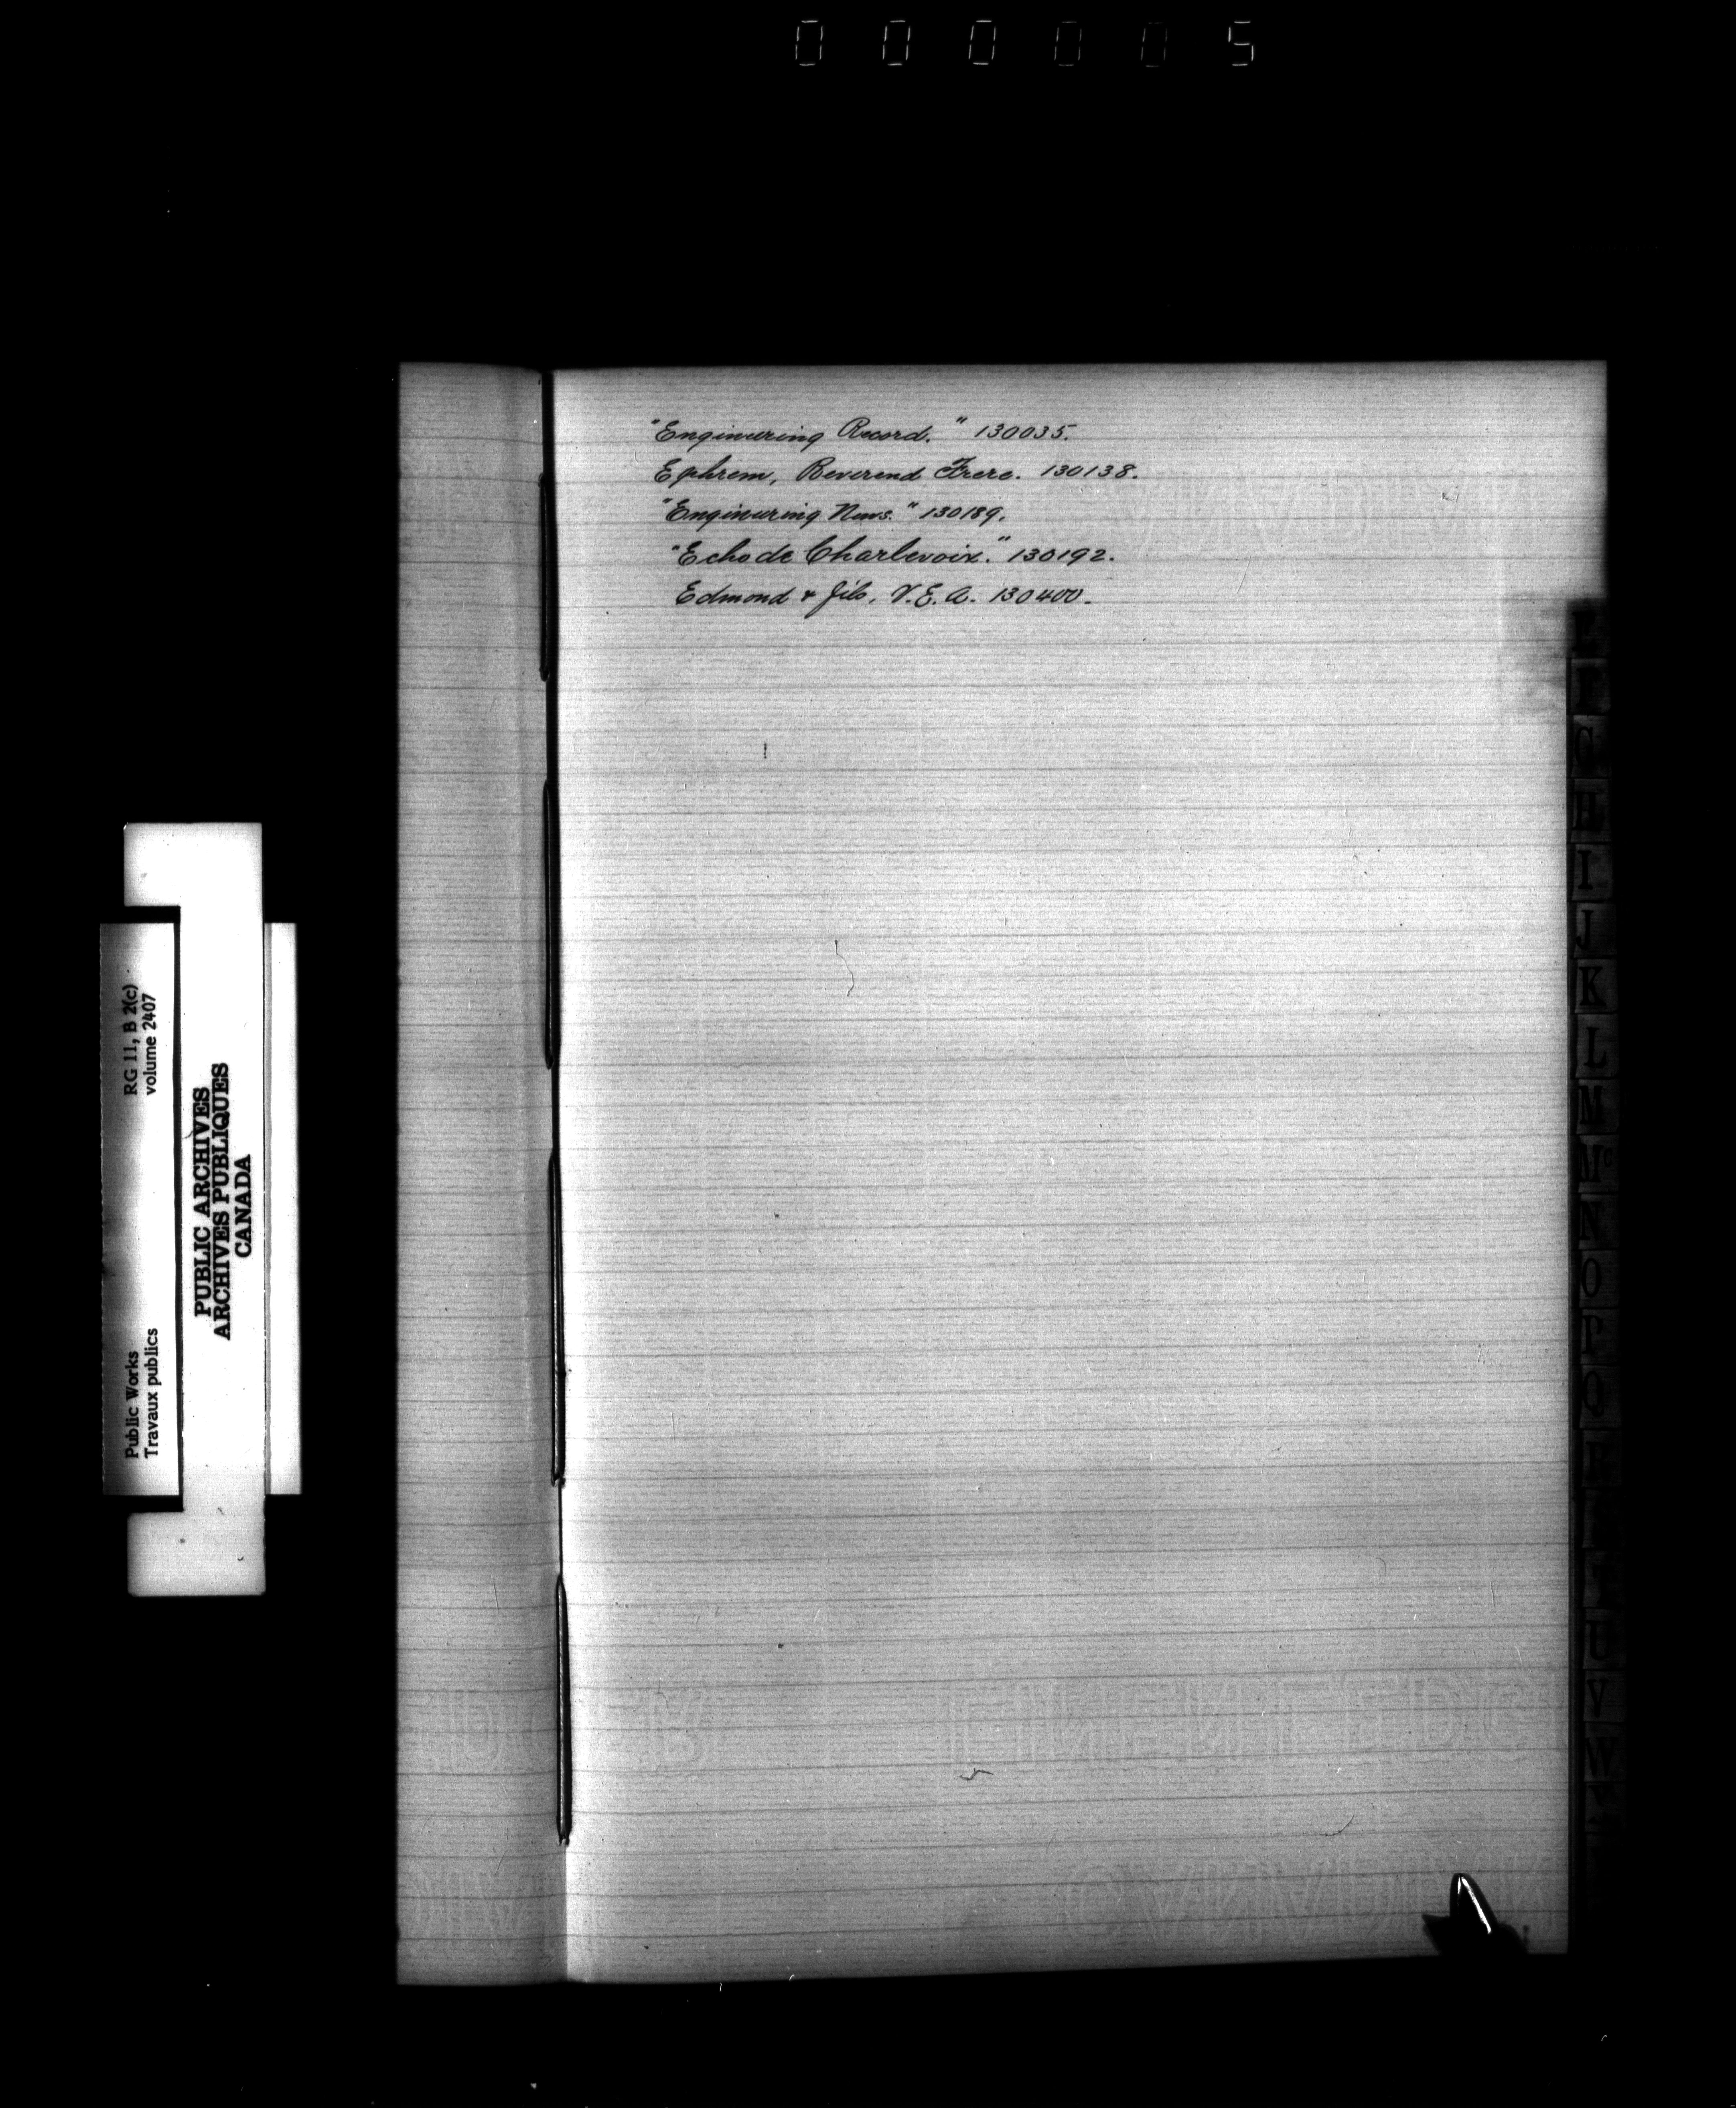 000005
"Engineering Record." 130035.
Ephrem, Reverend Frere. 130138.
"Engineering News." 130189.
"Echo de Charlevoix." 130192.
Edmond & fils, V.E.A. 130400.
Public Works
Travaux publics
RG 11, B 2(c)
volume 2407
PUBLIC ARCHIVES
ARCHIVES PUBLIQUES
CANADA
I
J
K
L
N
O
P
Q
U
V
W